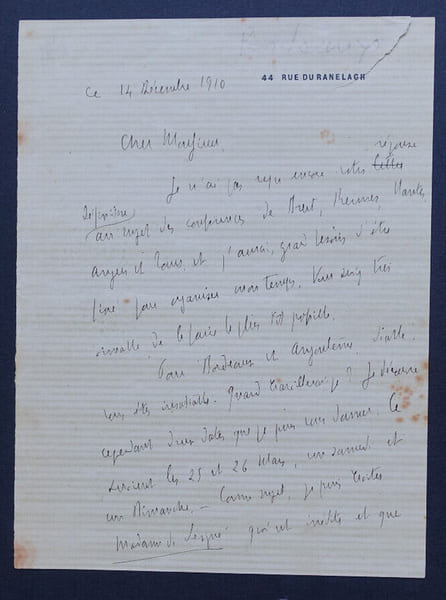 44 RUE DU RANELAGH
Ce 14 Décembre 1910
Cher Monsieur,
réponse
Je n'ai pas reçu encore votre lettre
définitive
au sujet des conférences de Brest, Rennes, Nantes,
Angers et Tours et j'aurai grand besoin d'être
fixé pour organiser mon temps. Vous serez très
aimable de le faire le plus tôt possible.
Pour Bordeaux et Angoulême, diable
vous êtes insatiable. Quand travaillerai-je? Je découvre
cependant deux dates que je puis vous donner. Ce
seraient les 25 et 26 Mars, un samedi et
un Dimanche. - Comme sujet, je puis traiter
Madame de qui est inédite et que